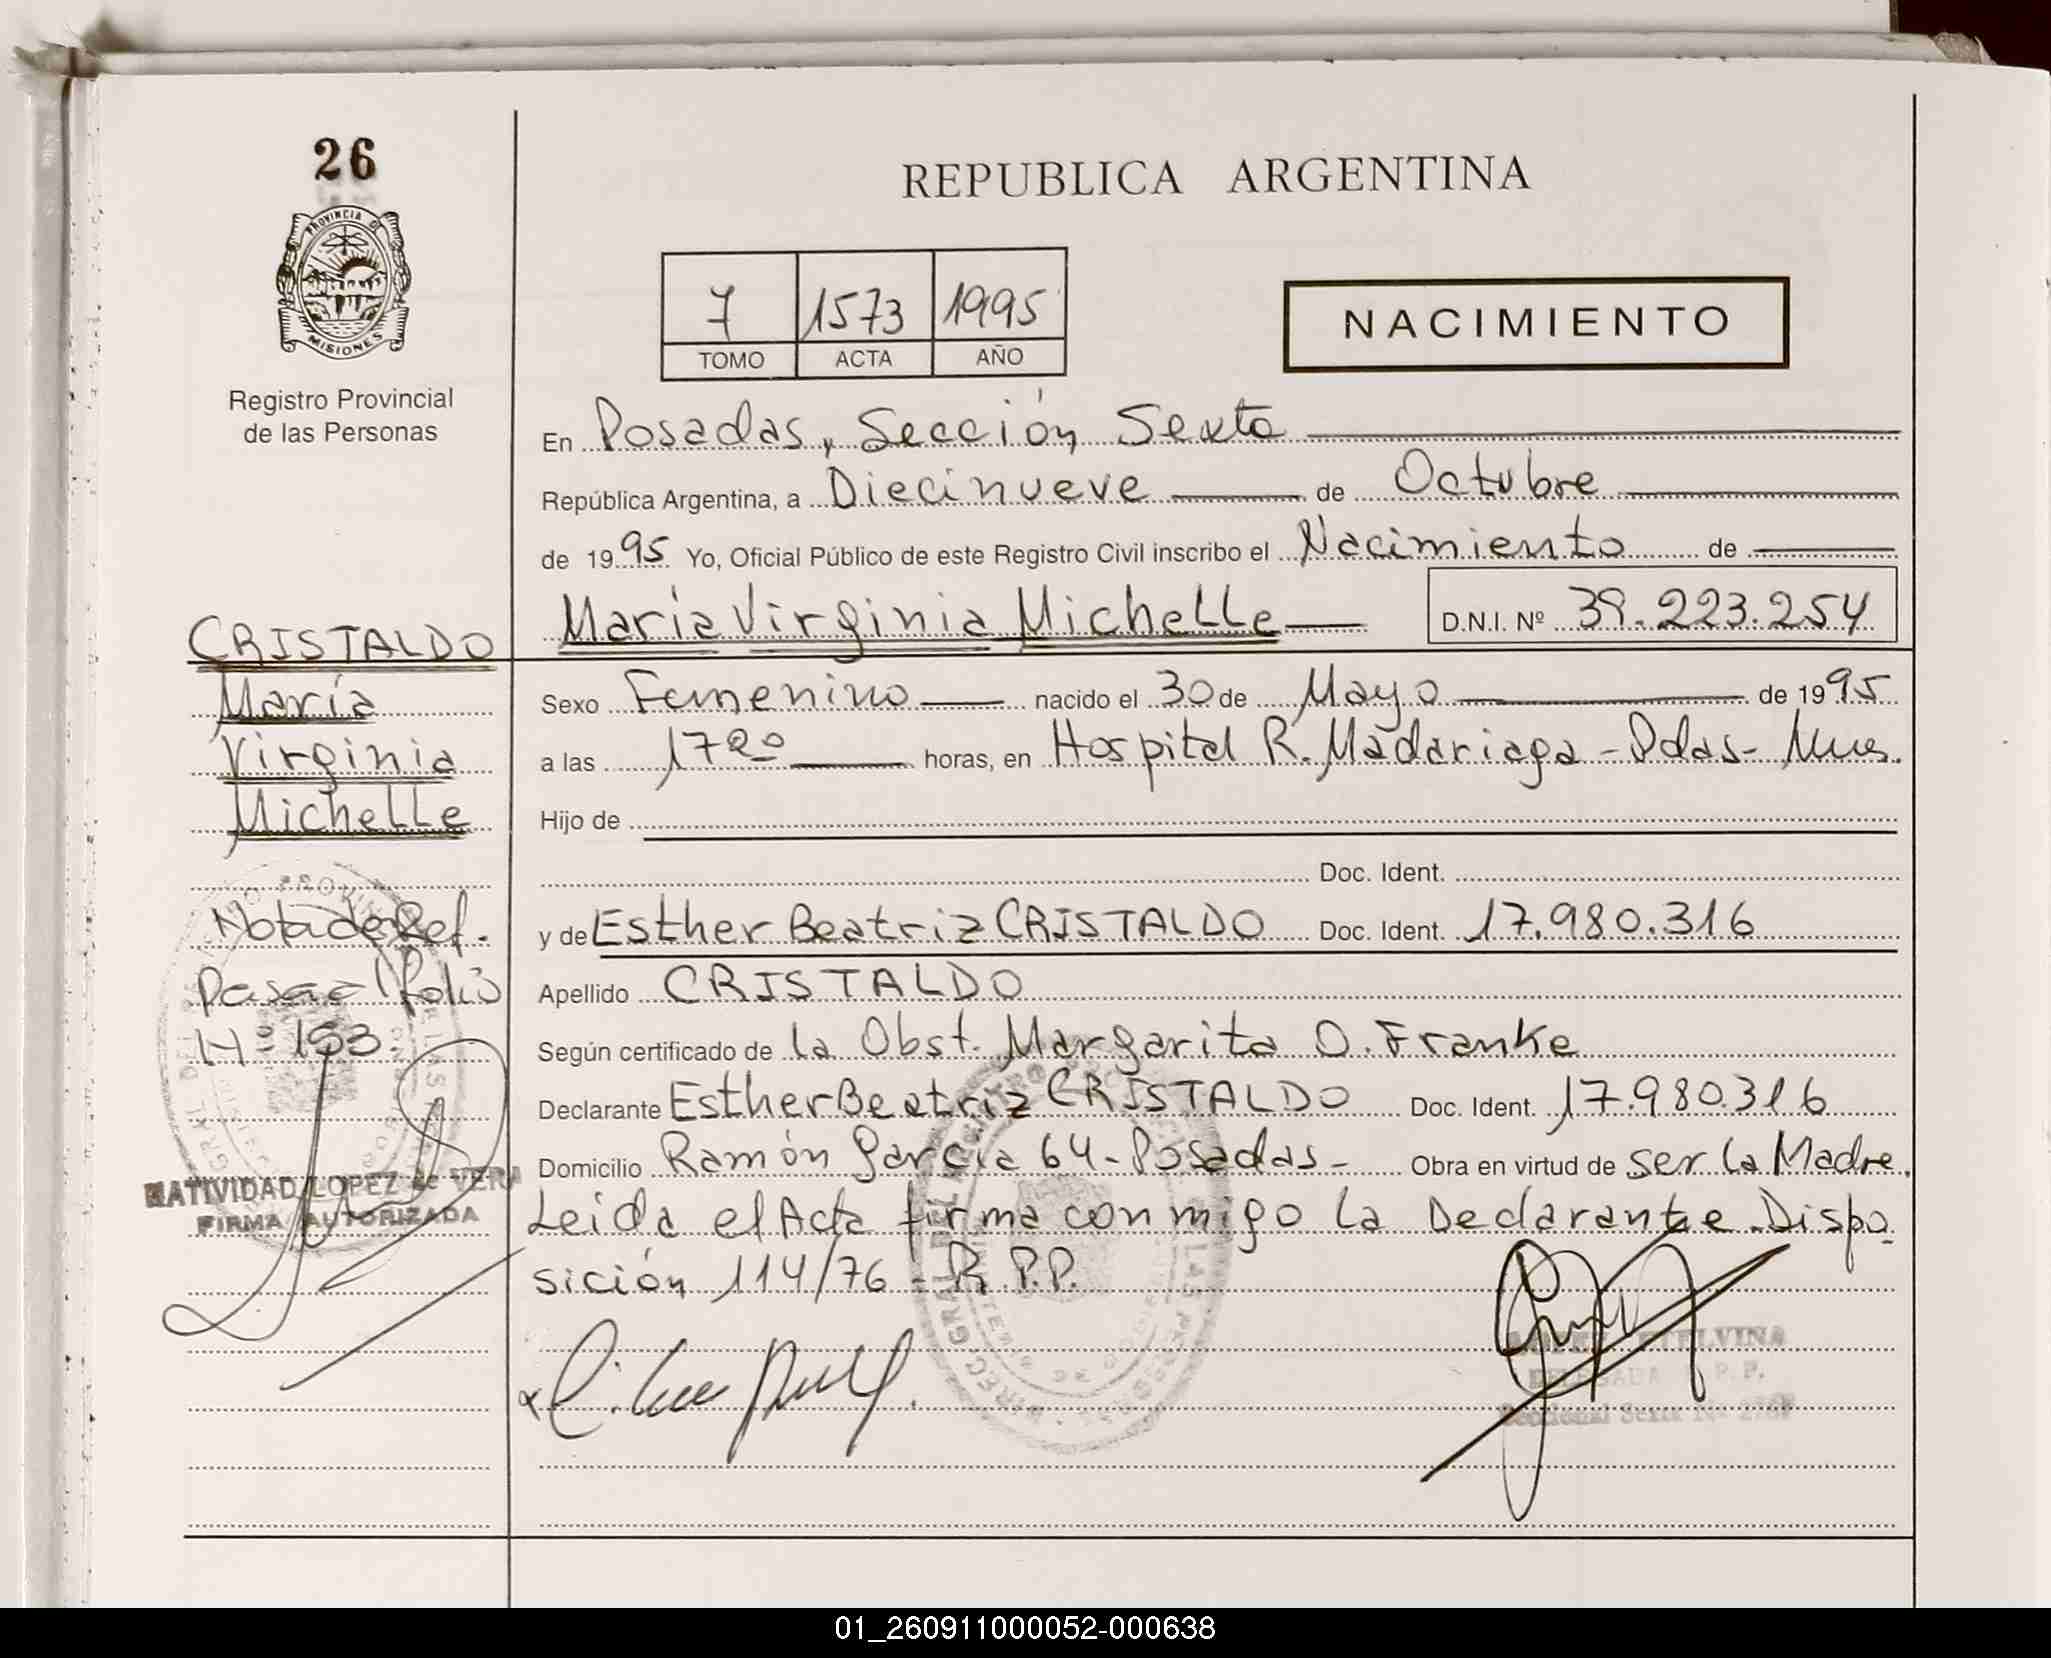 26
PROVINCIA DE
MISIONES
Registro Provincial
de las Personas
REPUBLICA ARGENTINA
7 1573 1995
TOMO ACTA AÑO
NACIMIENTO
En Posadas, Sección Sexta
República Argentina, a Diecinueve de Octubre
de 1995 Yo, Oficial Público de este Registro Civil inscribo el Nacimiento de
María Virginia Michelle D.N.I. Nº 39.223.254
CRISTALDO
María
Virginia
Michelle
Sexo Femenino nacido el 30 de Mayo de 1995
a las 17 20 horas, en Hospital R. Madariaga - Pdas - Mnes.
Hijo de
Doc. Ident.
y de Esther Beatriz CRISTALDO Doc. Ident. 17.980.316
Apellido CRISTALDO
Según certificado de la Obst. Margarita O. Franke
Declarante Esther Beatriz CRISTALDO Doc. Ident. 17.980.316
Domicilio Ramón García 64 - Posadas - Obra en virtud de ser la Madre.
Leida el Acta firma conmigo la Declarante. Dispo
sición 114/76 - R.P.P.
Nota de Ref.
Pasa al folio
Nº 193.
NATIVIDAD LOPEZ de VERA
FIRMA AUTORIZADA
ETELVINA
DELEGADA R.P.P.
Seccional Sexta
01_260911000052-000638